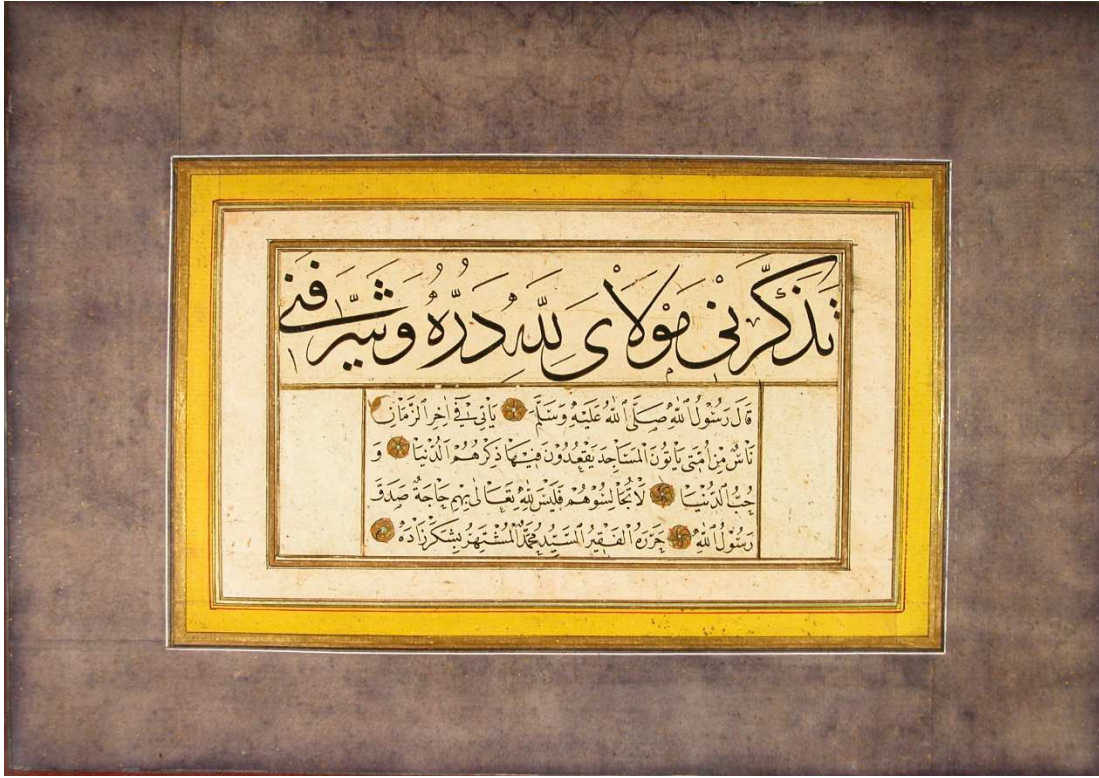 تَذَكَّرَنِي مَوْلَايَ لِلّٰهِ دَرُّهُ وَشَرَّفَنِي
قَالَ رَسُولُ اللّٰهِ صَلَّى اللّٰهُ عَلَيْهِ وَسَلَّمَ يَأْتِي فِي اٰخِرِ الزَّمَانِ
نَاسٌ مِنْ اُمَّتِي يَاْتُونَ الْمَسَاجِدَ يَقْعُدُونَ فِيهَا ذِكْرُهُمُ الدُّنْيَا وَ
حُبُّ الدُّنْيَا لَا تُجَالِسُوهُمْ فَلَيْسَ لِلّٰهِ تَعَالٰى بِهِمْ حَاجَةٌ صَدَقَ
رَسُولُ اللّٰهِ حَرَّرَهُ الْفَقِيرُ السَّيِّدُ مُحَمَّدٌ الْمُشْتَهِرُ بِشَكَرْزَادَه